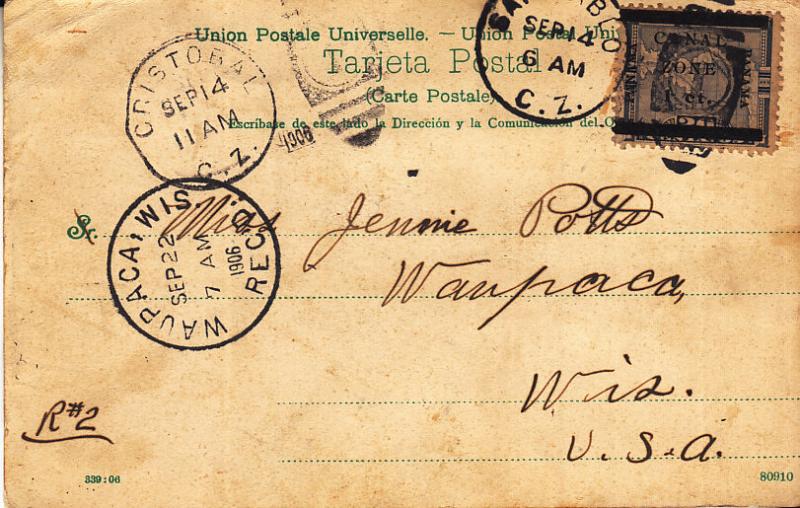 Union Postale Universelle. — Union Postal Uni
Tarjeta Postal
(Carte Postale)
Escríbase de este lado la Dirección y la Comunicación del O
CRISTOBAL
SEP 14
11 AM
C. Z.
1906
SAN PABLO
SEP 14
6 AM
C. Z.
CANAL
ZONE
1 ct.
PANAMA
WAUPACA, WIS.
SEP 22
7 AM
1906
REC'D
Sr.
Miss Jennie Potts
Waupaca,
Wis.
U.S.A.
R#2
339:06
80910